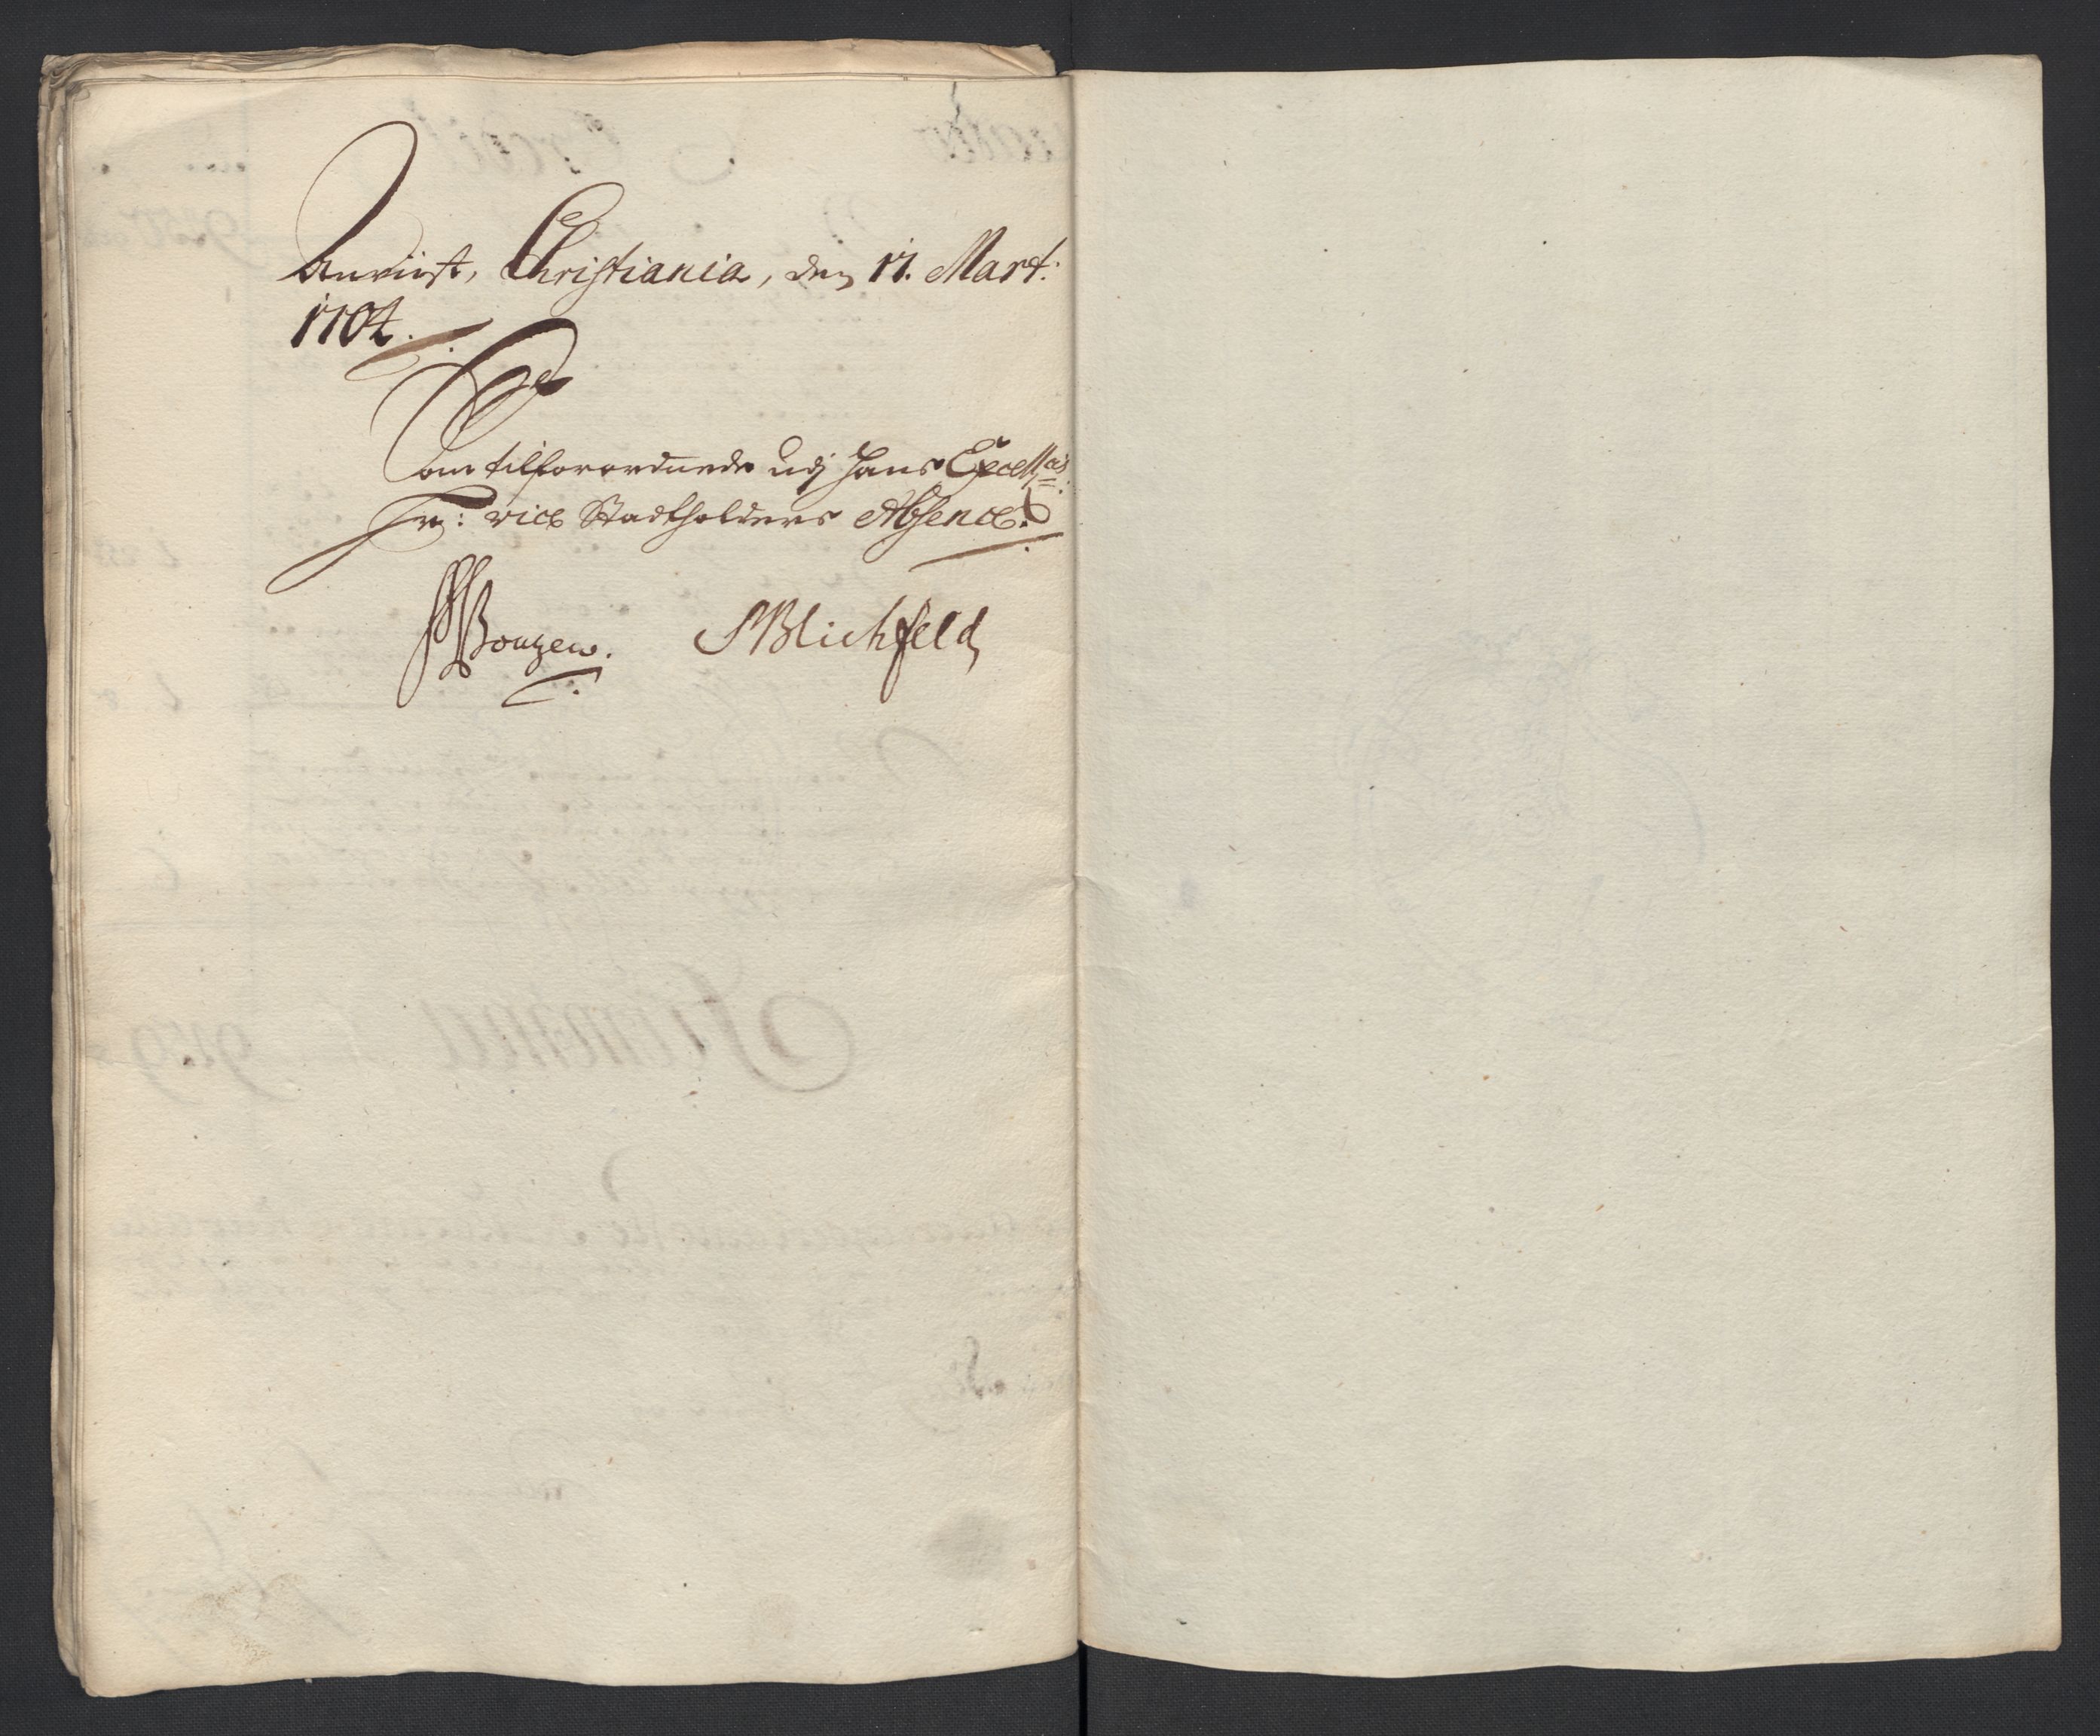 Anviist, Christiania, den 17. Mart:
1704.
Som tilforordnede udj Hans Excell:
Hr: vice Stadtholders Absence.
Blichfeld